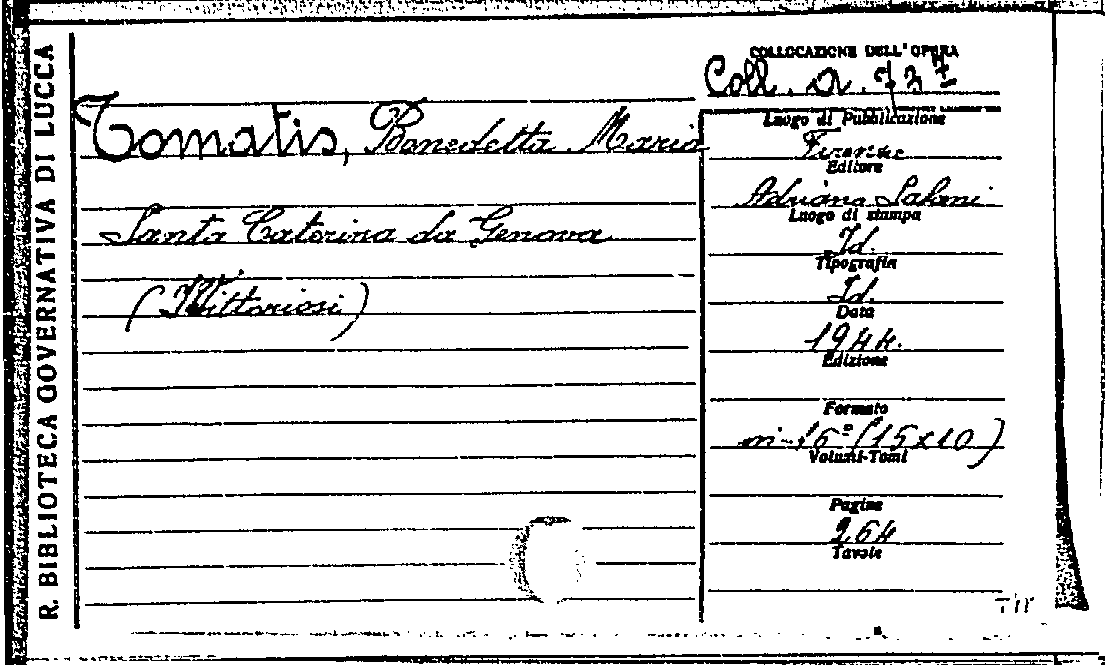 R. BIBLIOTECA GOVERNATIVA DI LUCCA
COLLOCAZIONE DELL'OPERA
Coll. a. 737
Tomatis, Benedetta Maria
Santa Caterina da Genova
Luogo di Pubblicazione
Firenze
Editore
Adriano Salani
Luogo di stampa
Id.
Tipografia
Id.
Data
1944.
Edizione
Formato
in-16º (15x10)
Volumi-Tomi
Pagine
264
Tavole